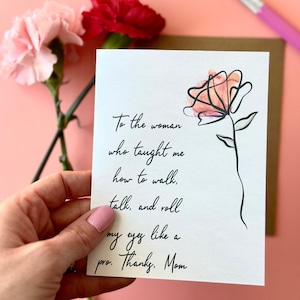 To the woman
who taught me
how to walk,
talk, and roll
my eyes like a
pro. Thanks, Mom